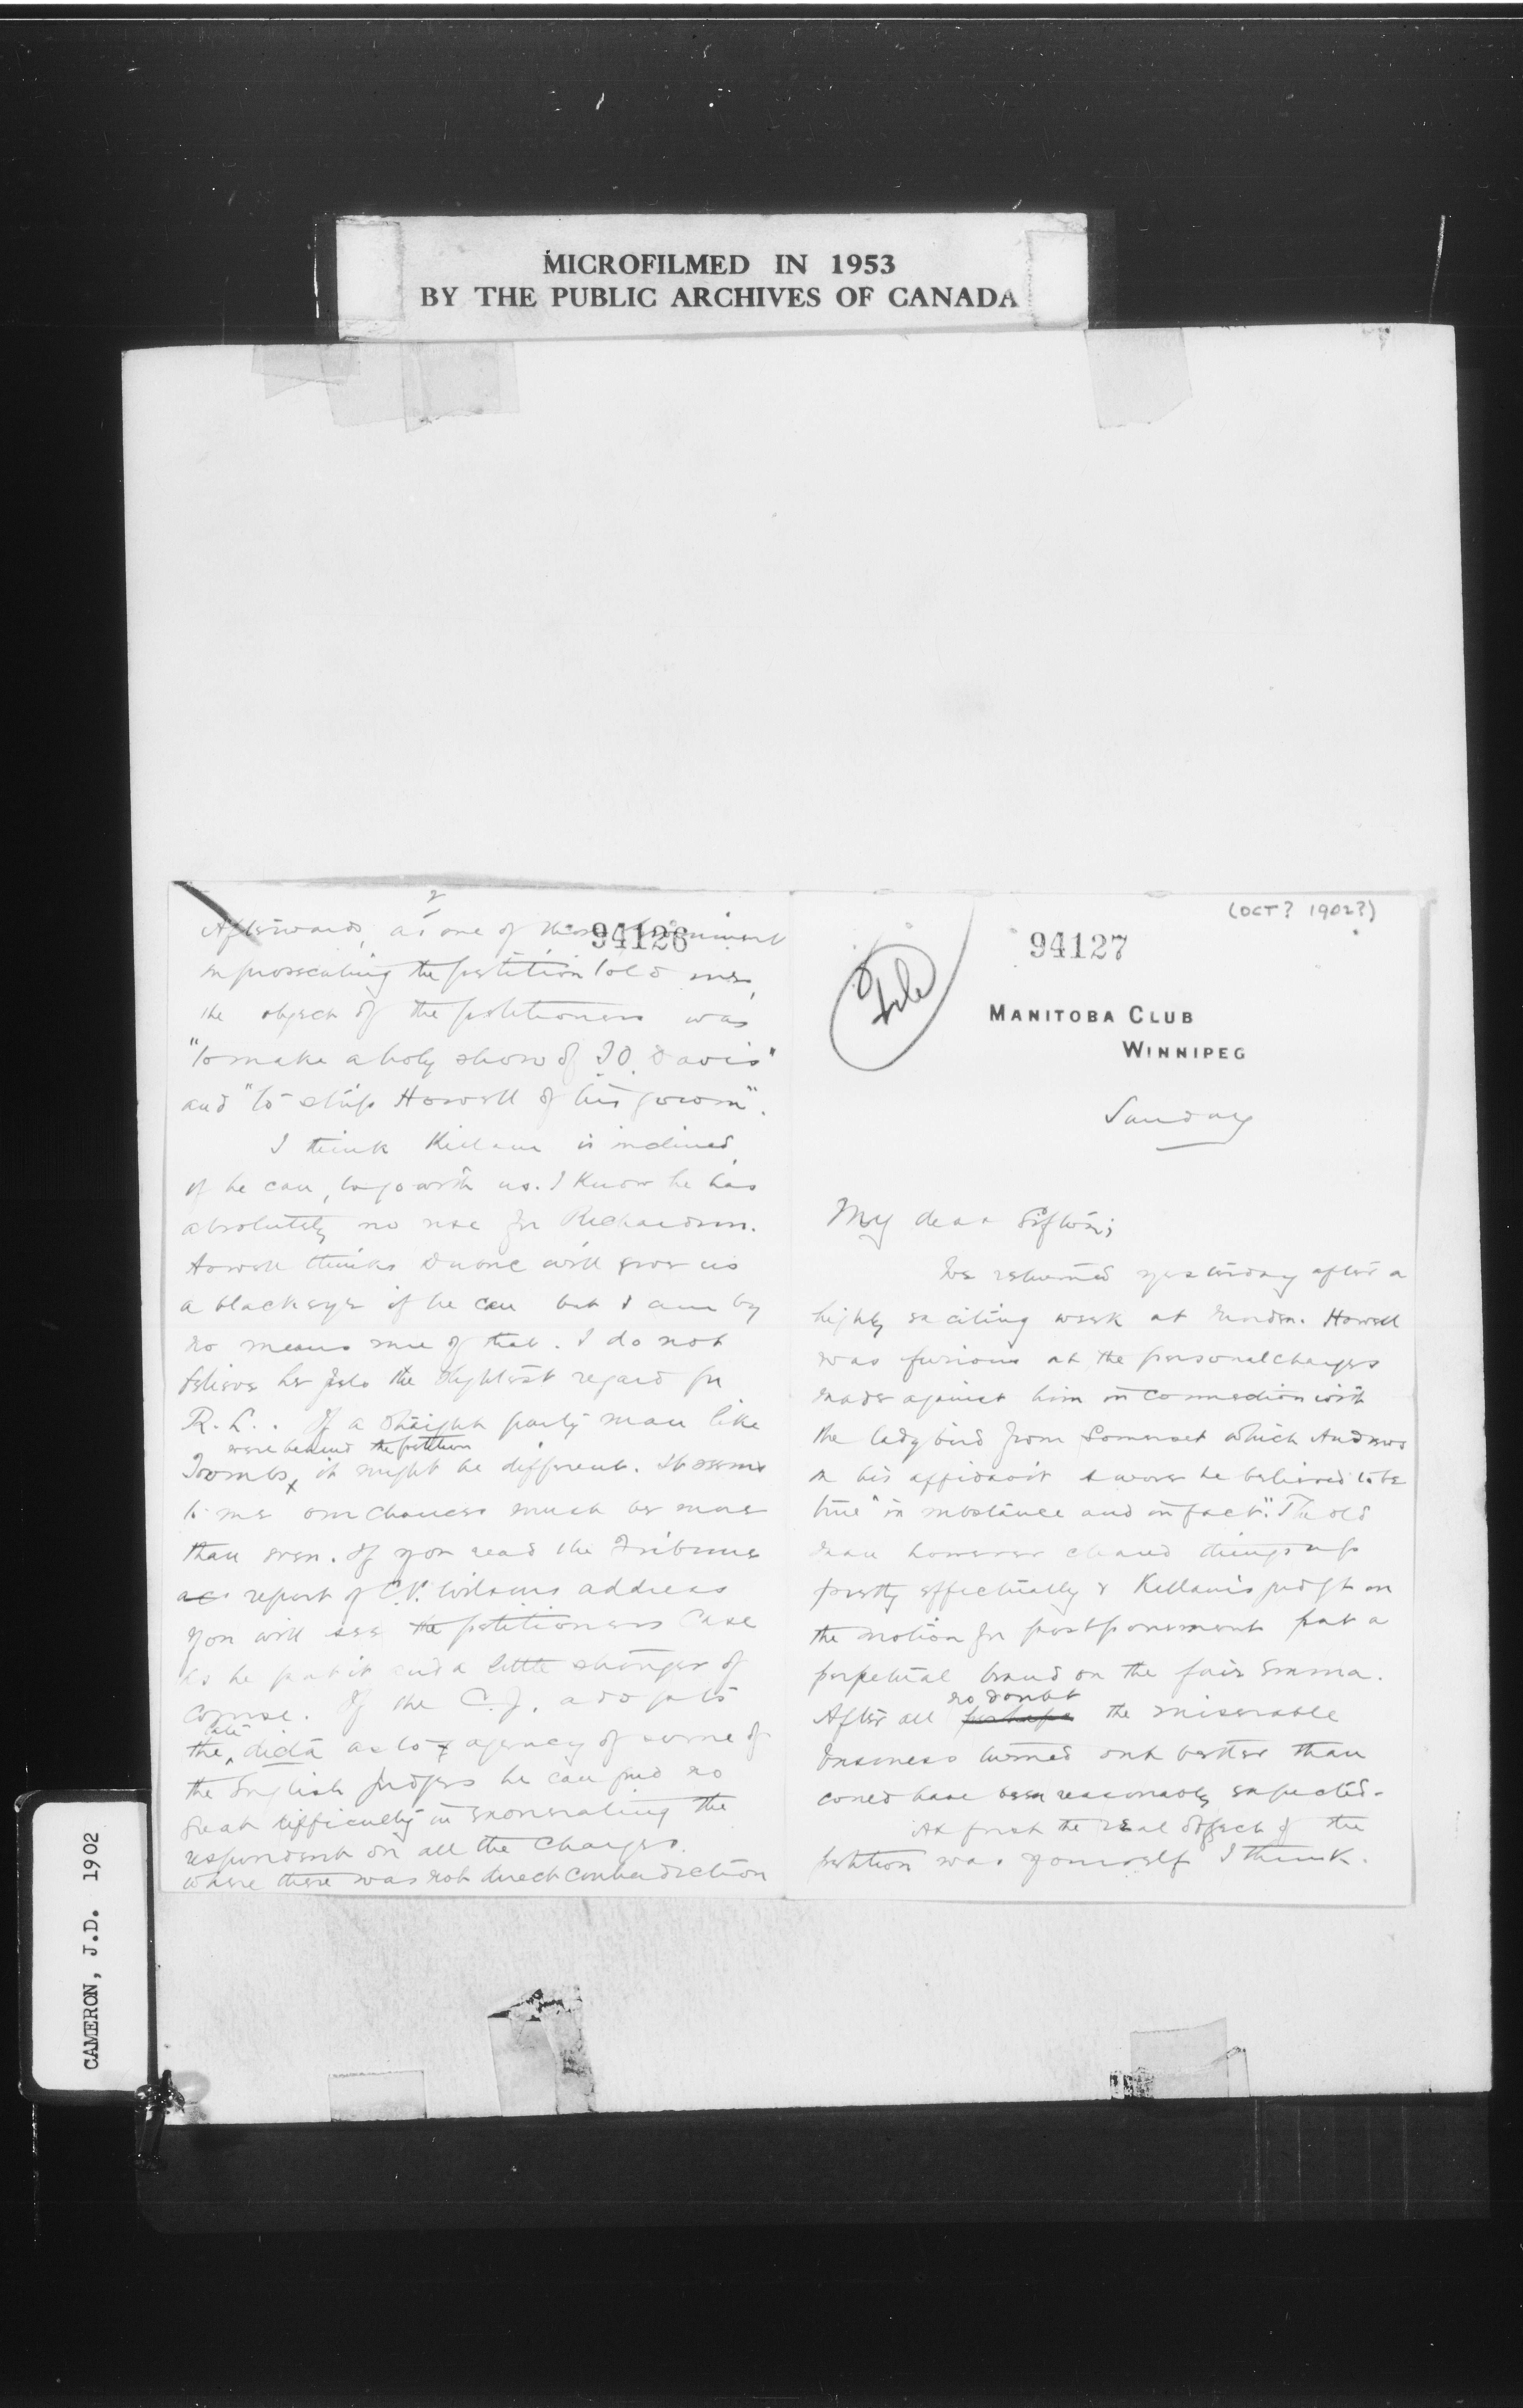 MICROFILMED IN 1953
BY THE PUBLIC ARCHIVES OF CANADA
(OCT? 1902?)
94127
File
MANITOBA CLUB
WINNIPEG
Sunday
My dear Sifton;
We returned yesterday after a
highly exciting week at Morden. Howell
was furious at the personal charges
made against him in connection with
the ladybird from Somerset which Andrews
in his affidavit swore he believed to be
true "in substance and in fact". The old
man however cleared things up
pretty effectually & Killam's judgt on
the motion for postponement put a
perpetual brand on the fair Emma.
After all perhaps no doubt the miserable
business turned out better than
could have been reasonably expected.
At first the real object of the
petition was yourself I think.
2
94126
Afterwards, as one of those
in prosecuting the petition told me,
the object of the petitioners was
"to make a holy show of T.O. Davis"
and "to strip Howell of his gown".
I think Killam is inclined,
if he can, to go with us. I know he has
absolutely no use for Richardson.
Howell thinks Dubuc will give us
a black eye if he can but I am by
no means sure of that. I do not
believe he feels the slightest regard for
R.L.. If a straight party man like
Toombs were behind the petition it might be different. It seems
to me our chances much be more
than even. If you read the Tribune
report of C.P. Wilsons address
you will see the petitioners case
as he put it and a little stronger of
course. If the C.J. adopts
the late dicta as to agency of some of
the English judges he can find no
great difficulty in exonerating the
respondent on all the charges.
where there was not direct contradiction
CAMERON, J.D. 1902